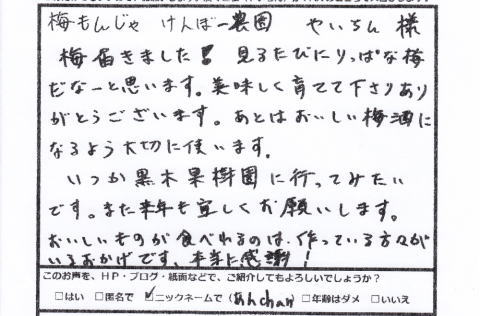 梅もんじゃ けんぼー農園 やいちん 様
梅届きました! 見るたびにりっぱな梅
だなーと思います。美味しく育てて下さりあり
がとうございます。あとはおいしい梅酒に
なるよう大切に使います。
いつか黒木果樹園に行ってみたい
です。また来年も宜しくお願いします。
おいしいものが食べれるのは、作っている方々が
いるおかげです、本当に感謝!
このお声を、HP・ブログ・紙面などで、ご紹介してもよろしいでしょうか?
□はい □匿名で ☑ニックネームで(あんchan) □年齢はダメ □いいえ